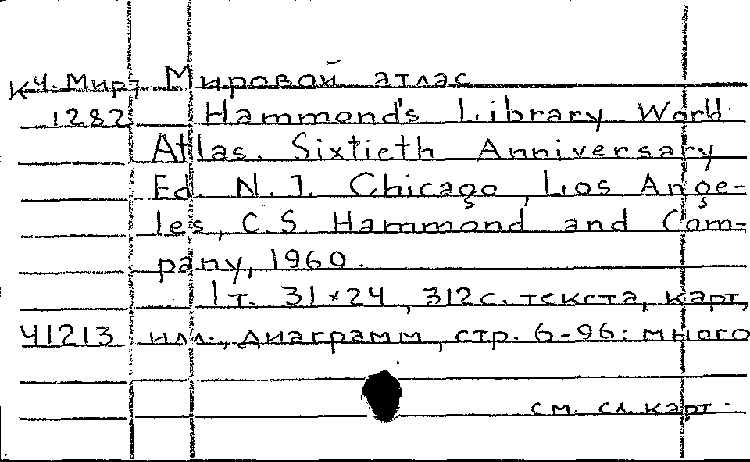 Кч.Мир-7 Мировой атлас
1282 Hammond's Library World
Atlas. Sixtieth Anniversary
Ed. N.J. Chicago, Los Ange-
les, C.S Hammond and Com-
pany, 1960.
1т. 31×24, 312с. текста, карт,
41213 илл., диаграмм, стр. 6-96: много
см. сл. карт.